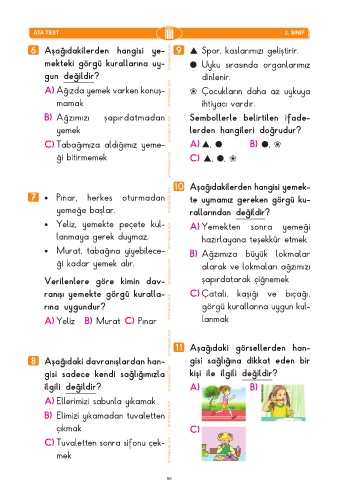 ATA TEST
2. SINIF
6 Aşağıdakilerden hangisi ye-
mekteki görgü kurallarına uy-
gun değildir?
A) Ağızda yemek varken konuş-
mamak
B) Ağzımızı şapırdatmadan
yemek
C) Tabağımıza aldığımız yeme-
ği bitirmemek
7 • Pınar, herkes oturmadan
yemeğe başlar.
• Yeliz, yemekte peçete kul-
lanmaya gerek duymaz.
• Murat, tabağına yiyebilece-
ği kadar yemek alır.
Verilenlere göre kimin dav-
ranışı yemekte görgü kuralla-
rına uygundur?
A) Yeliz B) Murat C) Pınar
8 Aşağıdaki davranışlardan han-
gisi sadece kendi sağlığımızla
ilgili değildir?
A) Ellerimizi sabunla yıkamak
B) Elimizi yıkamadan tuvaletten
çıkmak
C) Tuvaletten sonra sifonu çek-
mek
9 ▲ Spor, kaslarımızı geliştirir.
● Uyku sırasında organlarımız
dinlenir.
❀ Çocukların daha az uykuya
ihtiyacı vardır.
Sembollerle belirtilen ifade-
lerden hangileri doğrudur?
A) ▲, ● B) ●, ❀
C) ▲, ●, ❀
10 Aşağıdakilerden hangisi yemek-
te uymamız gereken görgü ku-
rallarından değildir?
A) Yemekten sonra yemeği
hazırlayana teşekkür etmek
B) Ağzımıza büyük lokmalar
alarak ve lokmaları ağzımızı
şapırdatarak çiğnemek
C) Çatalı, kaşığı ve bıçağı,
görgü kurallarına uygun kul-
lanmak
11 Aşağıdaki görsellerden han-
gisi sağlığına dikkat eden bir
kişi ile ilgili değildir?
A) B)
C)